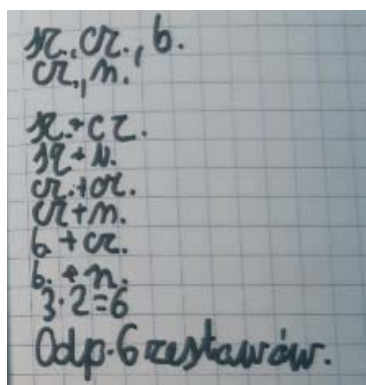 sz., cz., b.
cz., n.
sz. + cz.
sz + n.
cz. + cz.
cz + n.
b + cz.
b. + n.
3·2=6
Odp. 6 zestawów.